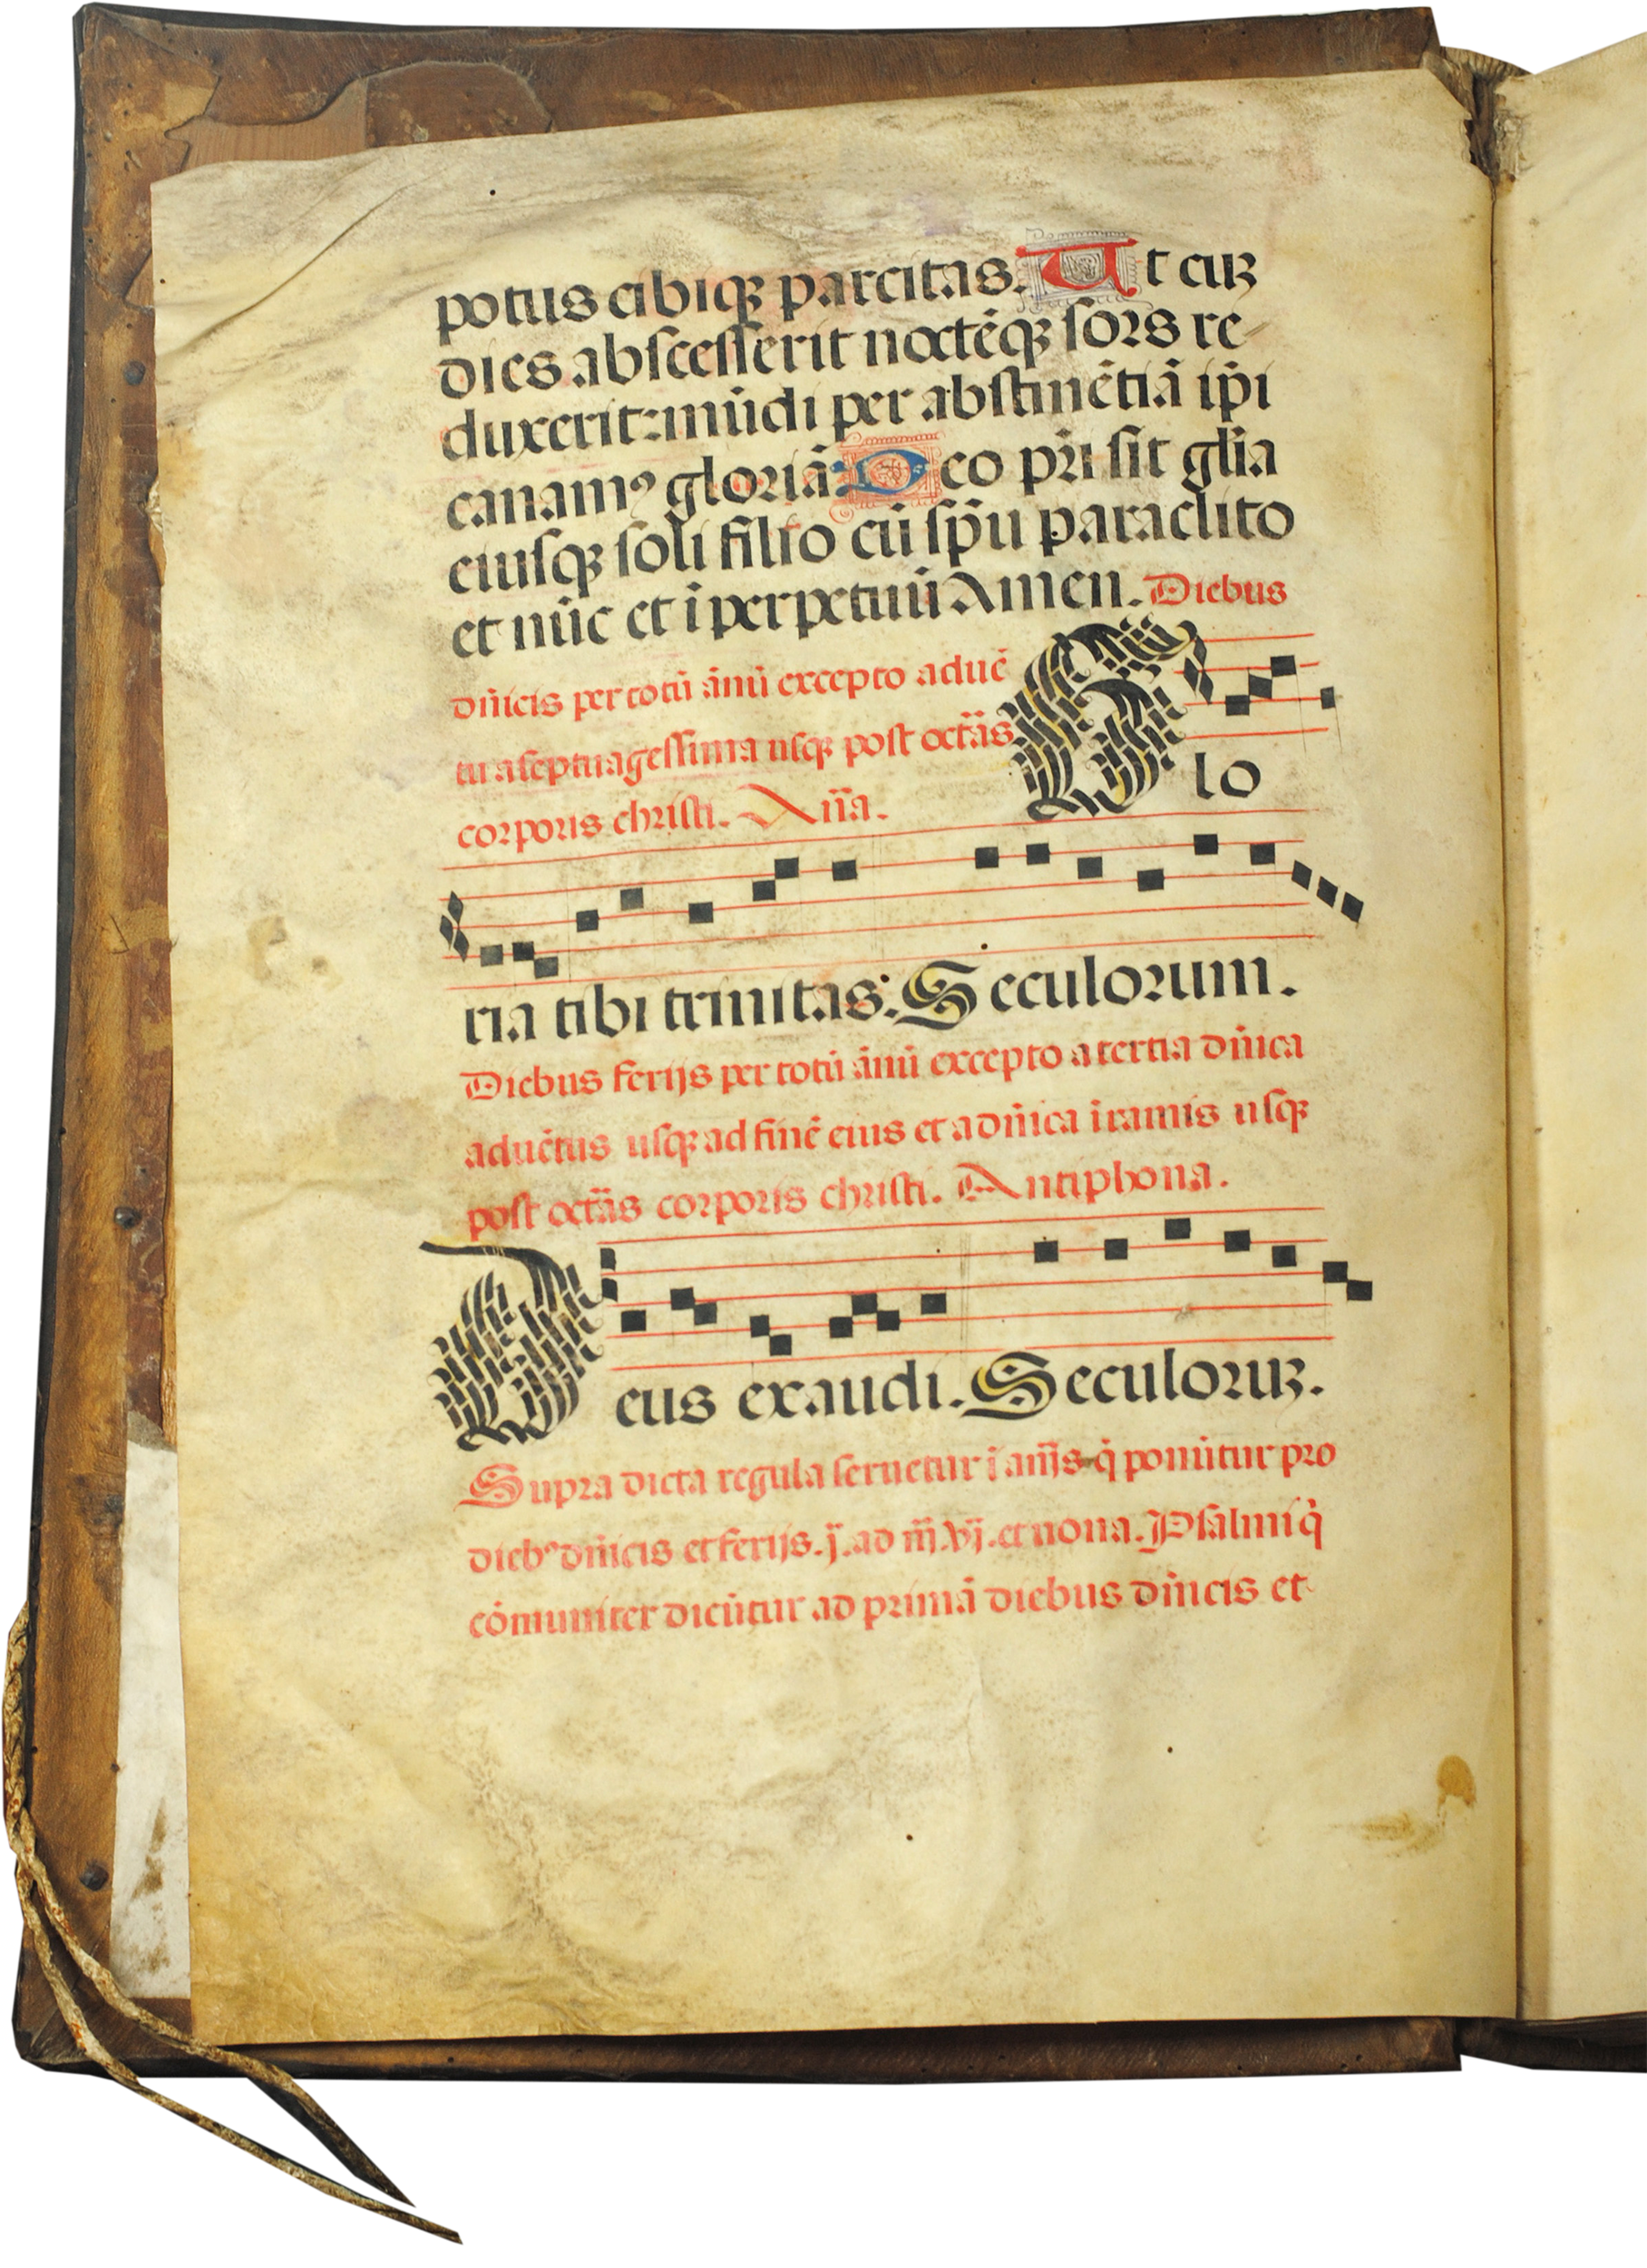 potus cibiqꝫ parcitas. Ut cuꝫ
dies abſceſſerit noctēqꝫ ſors re-
duxerit: mūdi per abſtinētiā ip̄i
canamꝰ gloriā. Deo pr̄i ſit gl̄ia
eiuſqꝫ ſoli filio cū ſp̄u paraclito
et nūc et ī perpetuū Amen. Diebus
dn̄icis per totū ānū excepto aduē
tu a ſeptuageſſima uſqꝫ poſt octā̄s
corporis chriſti. An̄a. Glo
ria tibi trinitas: Seculorum.
Diebus ferijs per totū ānū excepto a tertia dn̄ica
aduētus uſqꝫ ad finē eius et a dn̄ica ī ramis uſqꝫ
poſt octā̄s corporis chriſti. Antiphona.
Deus exaudi. Seculoruꝫ.
Supra dicta regula ſeruetur ī an̄is q̇ ponūtur pro
diebꝰ dn̄icis et ferijs. j̄. ad iij̄. vj̄. et nona. Pſalmi q̇
cōmuniter dicūtur ad primā diebus dn̄icis et